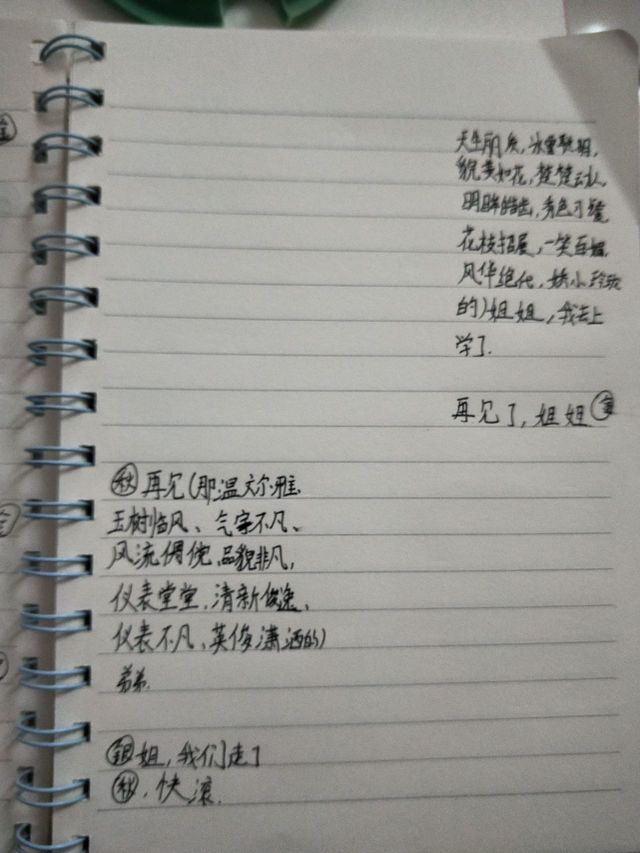 天生丽质，冰雪聪明，
貌美如花，楚楚动人，
明眸皓齿，秀色可餐，
花枝招展，一笑百媚，
风华绝代，娇小玲珑
的）姐姐，我去上
学了.
再见了，姐姐 金
秋 再见（那温文尔雅、
玉树临风、气宇不凡、
风流倜傥、品貌非凡，
仪表堂堂，清新俊逸、
仪表不凡、英俊潇洒的）
弟弟.
银 姐，我们走了
秋 . 快滚.